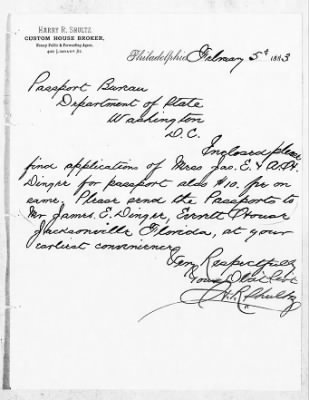 HARRY R. SHULTZ
CUSTOM HOUSE BROKER,
Notary Public & Forwarding Agent,
400 LIBRARY St.
Philadelphia, February 5th 1883
Passport Bureau
Department of State
Washington
D.C.
Enclosed please
find applications of Messrs Jas. E. & A.H.
Dinger for passport also $10. fee on
same. Please send the Passports to
Mr James. E. Dinger, Everett House
Jacksonville Florida, at your
earliest convenience
Very Respectfully
Your Obdt Servt
H. R. Shultz